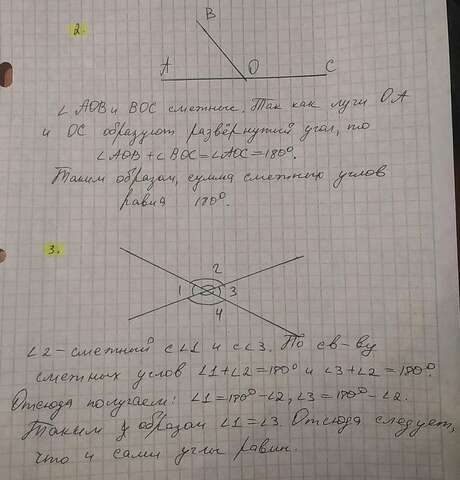 2.
B
A O C
∠ AOB и BOC смежные. Так как лучи OA
и OC образуют развёрнутый угол, то
∠AOB + ∠BOC = ∠AOC = 180°.
Таким образом, сумма смежных углов
равна 180°.
3.
2
1 3
4
∠2 - смежный с ∠1 и с ∠3. По св-ву
смежных углов ∠1+∠2=180° и ∠3+∠2=180°.
Отсюда получаем: ∠1=180°-∠2, ∠3=180°-∠2.
Таким образом ∠1=∠3. Отсюда следует,
что и сами углы равны.